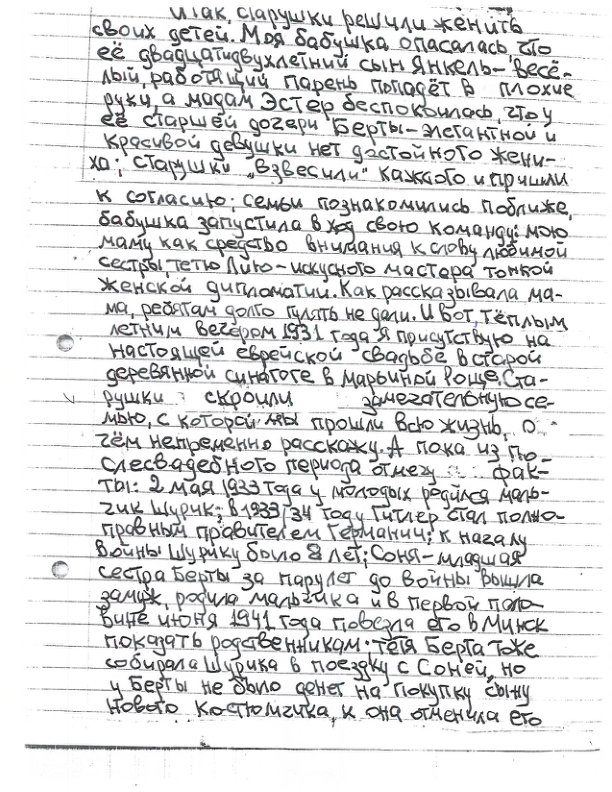 Итак, старушки решили женить
своих детей. Моя бабушка опасалась что
её двадцатидвухлетний сын Янкель – весё-
лый, работящий парень попадёт в плохие
руки, а мадам Эстер беспокоилась, что у
её старшей дочери Берты – элегантной и
красивой девушки нет достойного жени-
ха; старушки „взвесили" каждого и пришли
к согласию; семьи познакомились поближе,
бабушка запустила в ход свою команду: мою
маму как средство внимания к слову любимой
сестры, тетю Лию – искусного мастера тонкой
женской дипломатии. Как рассказывала ма-
ма, ребятам долго гулять не дали. И вот, тёплым
летним вечером 1931 года я присутствую на
настоящей еврейской свадьбе в старой
деревянной синагоге в Марьиной Роще. Ста-
рушки скроили замечательную се-
мью, с которой мы прошли всю жизнь, о
чём непременно расскажу. А пока из по-
слесвадебного периода отмечу фак-
ты: 2 мая 1933 года у молодых родился маль-
чик Шурик; в 1933/34 году Гитлер стал полно-
правным правителем Германии; к началу
войны Шурику было 8 лет; Соня – младшая
сестра Берты за пару лет до войны вышла
замуж, родила мальчика и в первой поло-
вине июня 1941 года повезла его в Минск
показать родственникам; тётя Берта тоже
собирала Шурика в поездку с Соней, но
у Берты не было денег на покупку сыну
нового костюмчика, и она отменила его